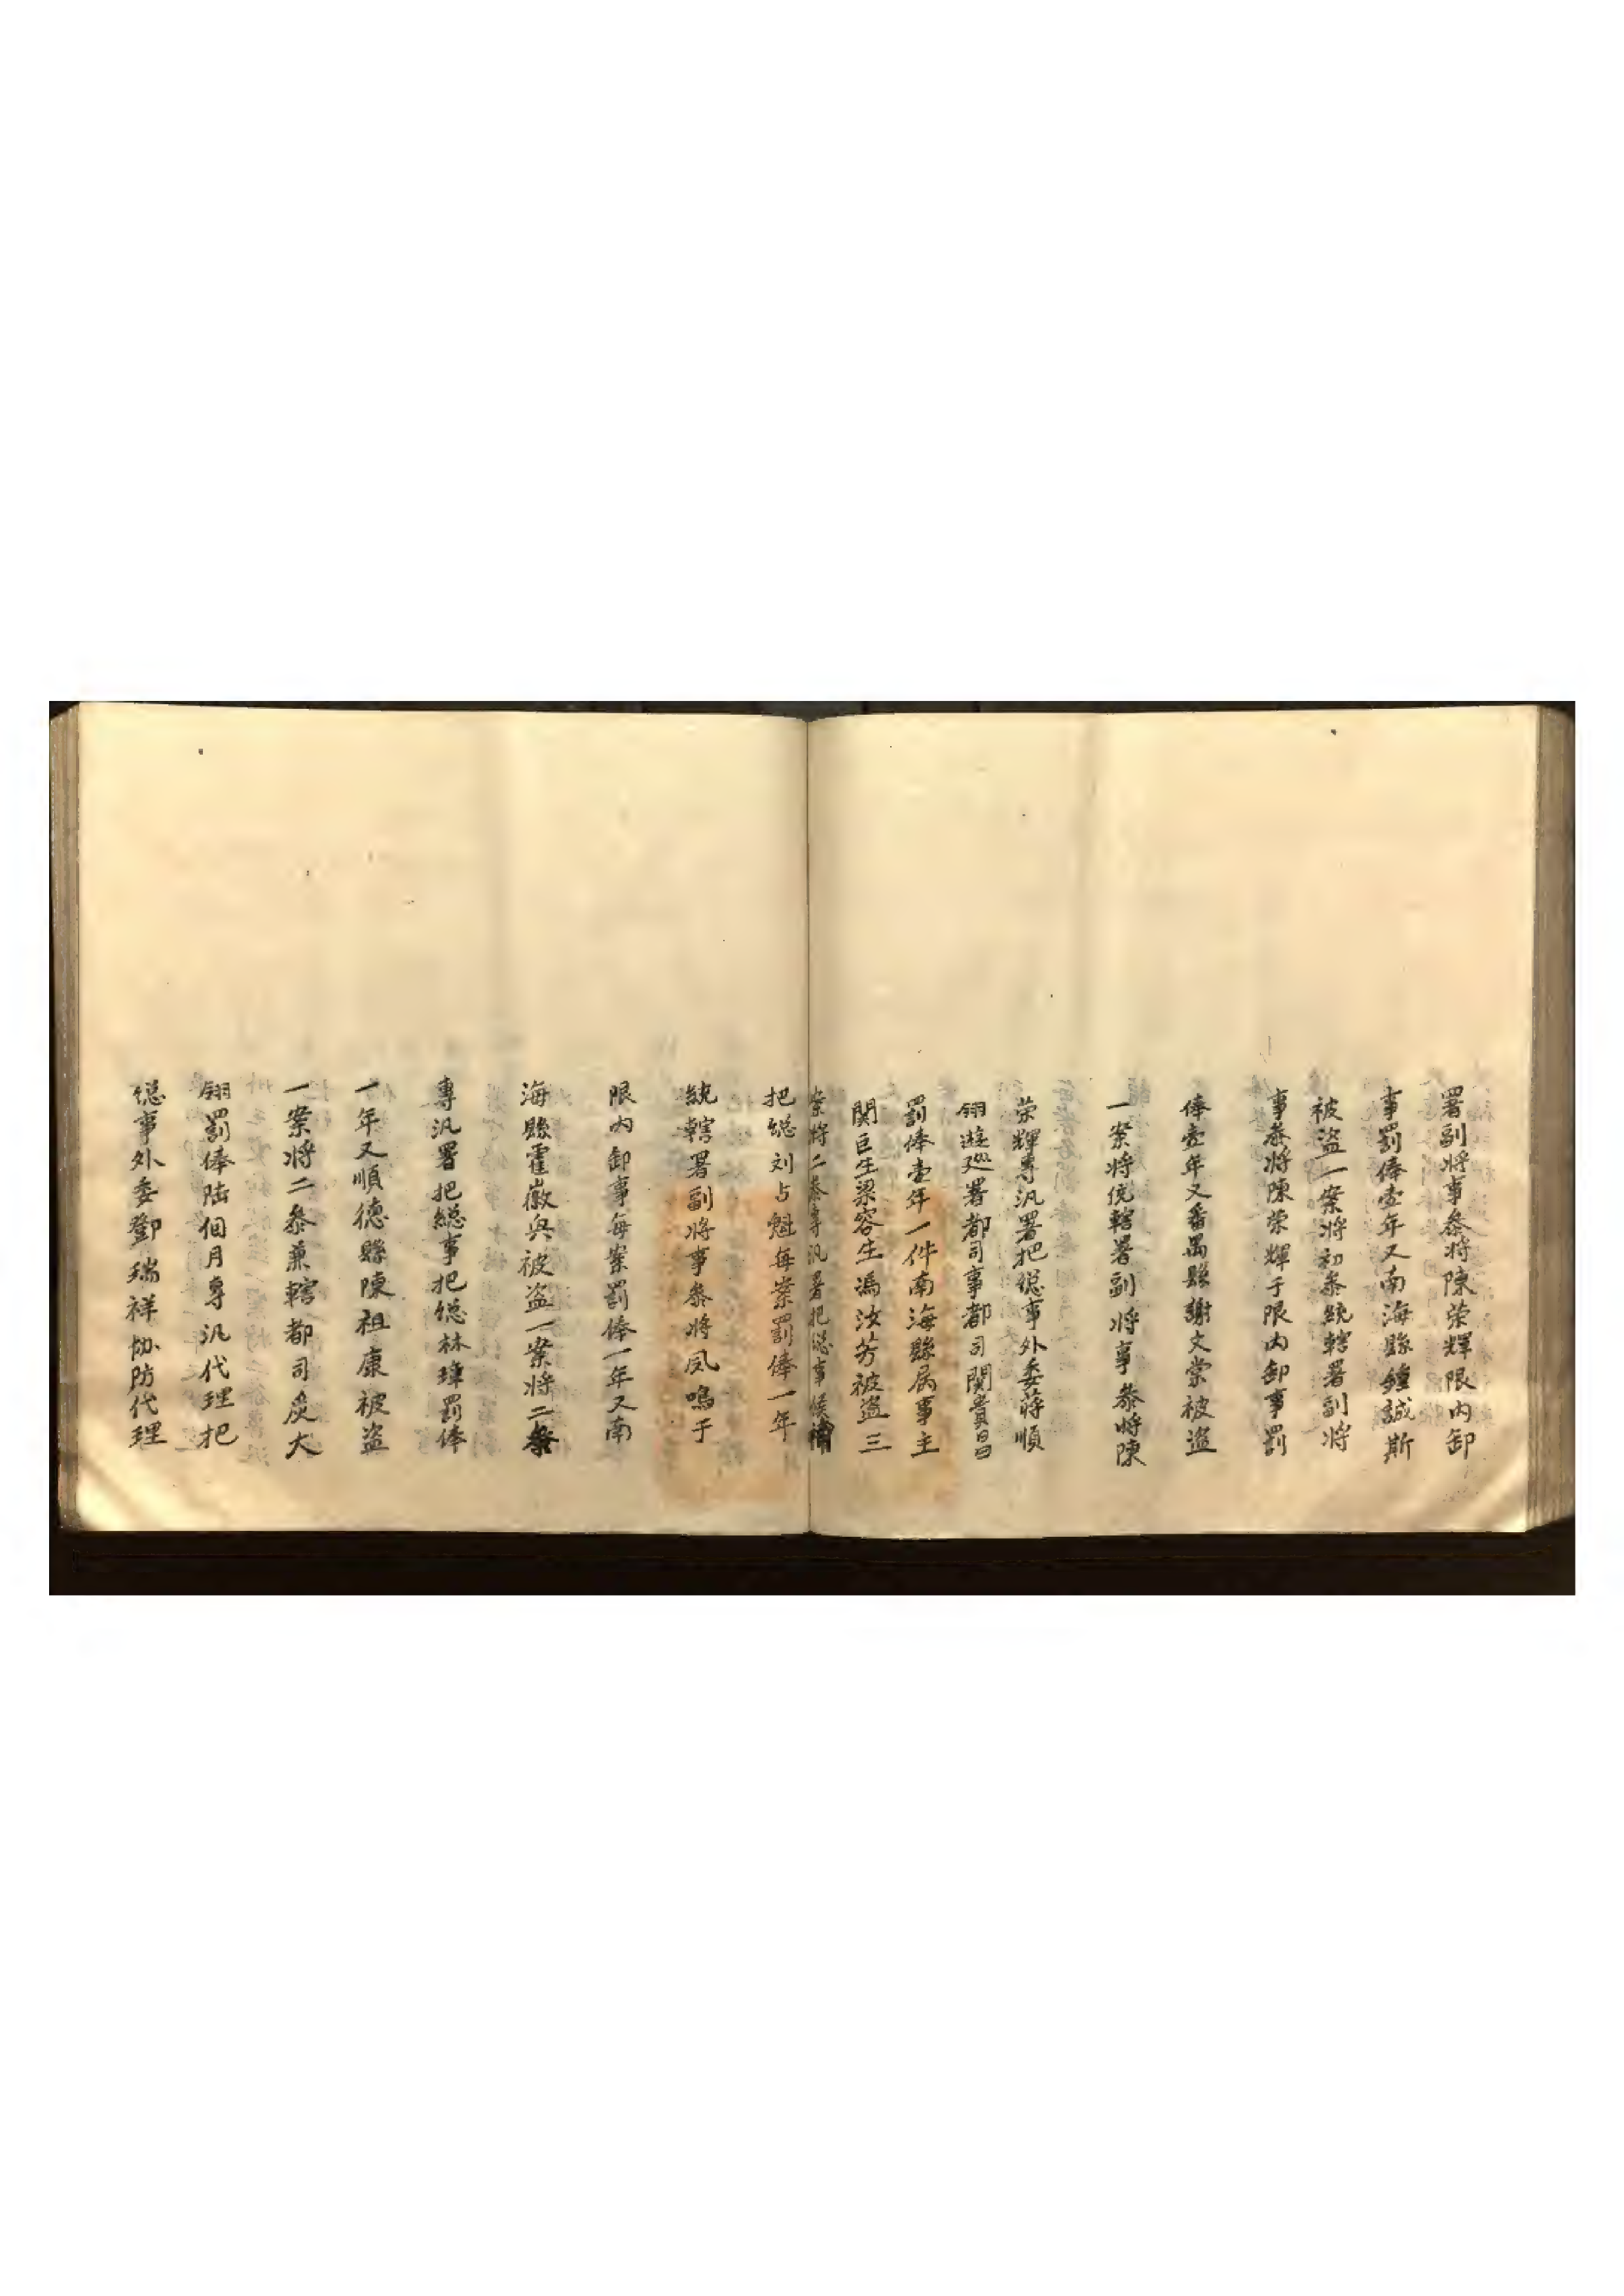 署副将事叅将陳荣輝限内卸
事罰俸壹年又南海縣鍾誠斯
被盗一案将初叅統轄署副将
事叅将陳荣輝于限内卸事罰
俸壹年又番禺縣謝文棠被盗
一案将統轄署副将事叅将陳
荣輝專汛署把總事外委蒋順
翎遊廵署都司事都司関貴昌
罰俸壹年一件南海縣属事主
関巨生梁容生馮汝芳被盗三
案将二叅專汛署把總事候補
把總刘占魁每案罰俸一年
統轄署副将事叅将凤鳴于
限内卸事每案罰俸一年又南
海縣霍徽兴被盗一案将二叅
專汛署把總事把總林璋罰俸
一年又順德縣陳祖康被盗
一案将二叅兼轄都司炭大
翎罰俸陆個月專汛代理把
總事外委鄧瑞祥协防代理